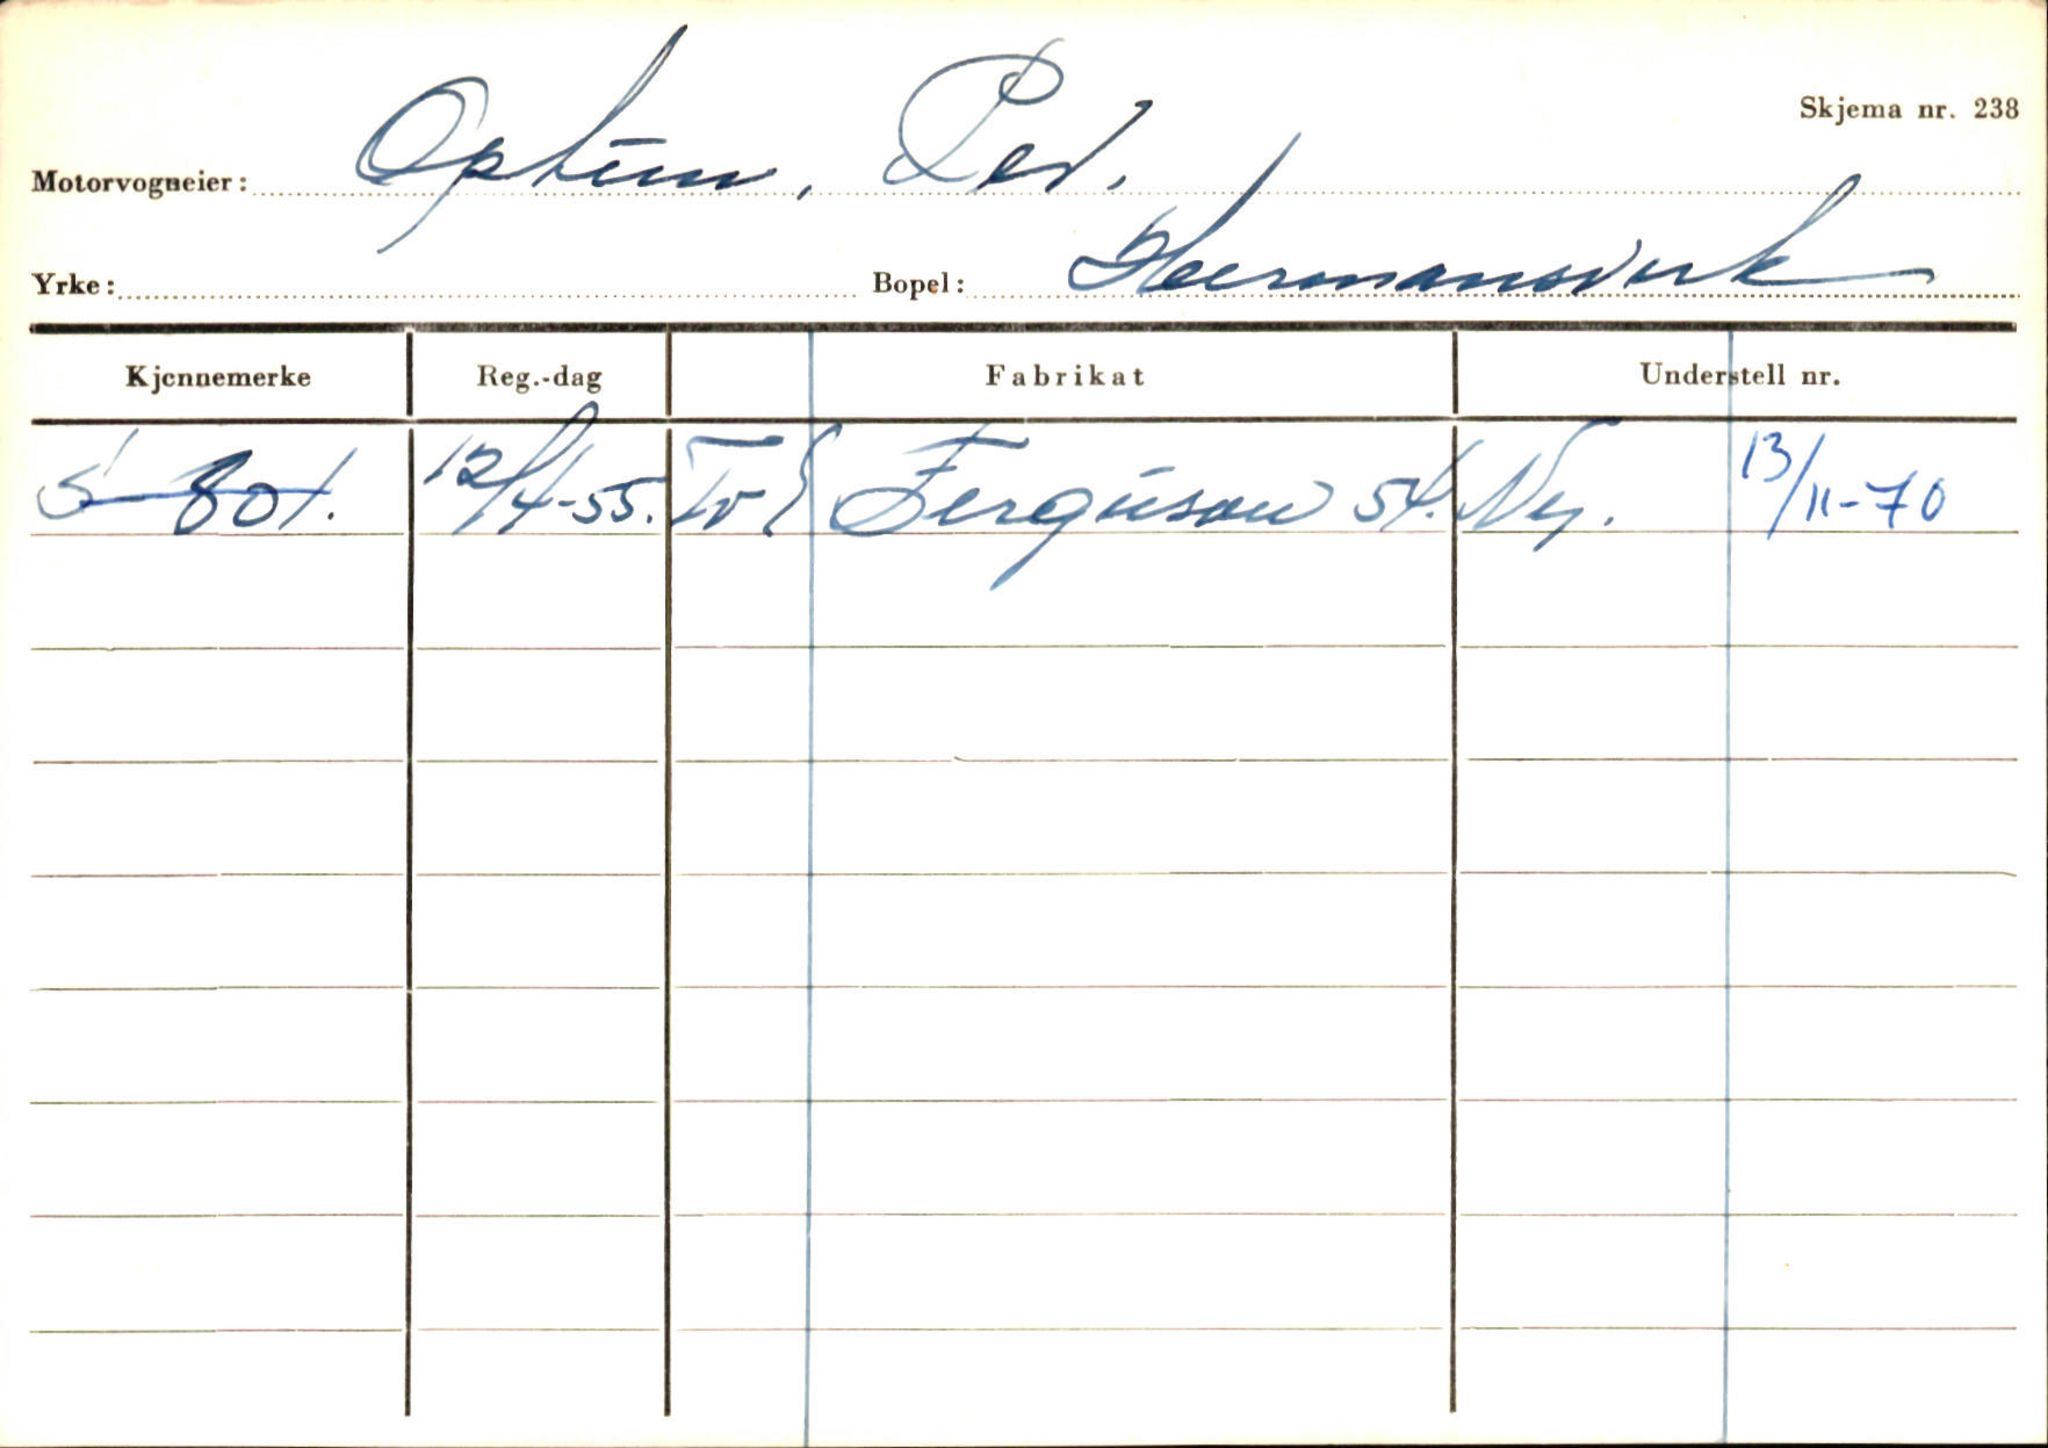 Skjema nr. 238
Motorvogneier: Optun, Ped.
Yrke: Bopel: Hermansverk
Kjennemerke Reg.-dag Fabrikat Understell nr.
S-801. 12/4-55. Tr Ferguson 54. Ny. 13/11-70